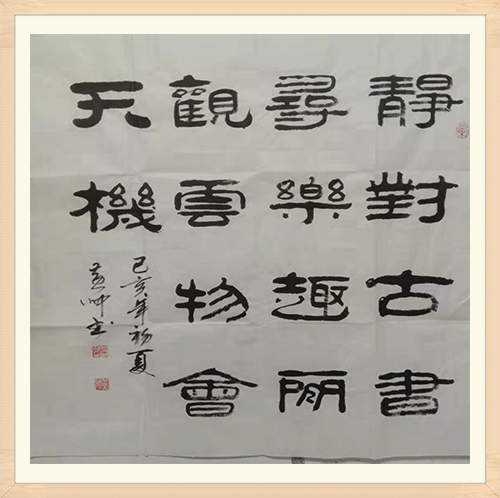 靜對古書
尋樂趣
觀雲物會
天機
己亥年初夏
书